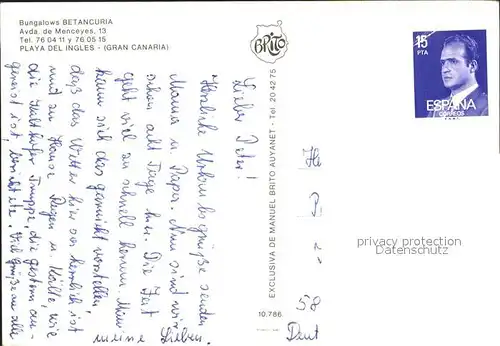 Bungalows BETANCURIA
Avda. de Menceyes, 13
Tel. 76 04 11 y 76 05 15
PLAYA DEL INGLES - (GRAN CANARIA)
BRITO
EXCLUSIVA DE MANUEL BRITO AUYANET - Tel. 20 42 75
10.786
15
PTA
ESPAÑA
CORREOS
Lieber Peter!
Herzliche Urlaubsgrüße senden
Mama u. Papa. Nun sind wir
schon acht Tage hier. Die Zeit
geht viel zu schnell herum. Man
kann sich das garnicht vorstellen,
daß das Wetter hier so herrlich ist
und zu Hause Regen u. Kälte, wie
die Truppe, die gestern an-
gereist ist, berichtete. Viele Grüße an alle
meine Lieben.
58
privacy protection
Datenschutz